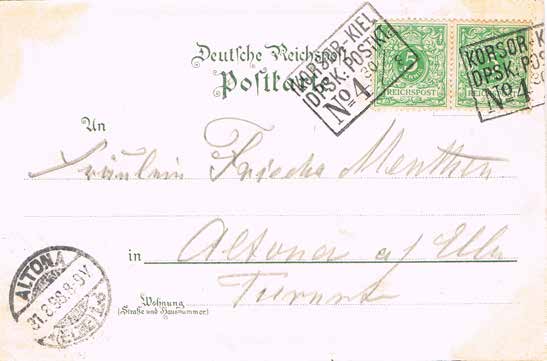 Deutsche Reichspost
Postkarte
KORSØR-KIEL
DPSK:POSTKT.
No 4
5
REICHSPOST
KORSØR-K
DPSK:POS
No 4
An
Fräulein Frieda Menthen
in Altona a/ Elbe
ALTONA
31.8.98.8-9V
Wohnung
(Straße und Hausnummer)